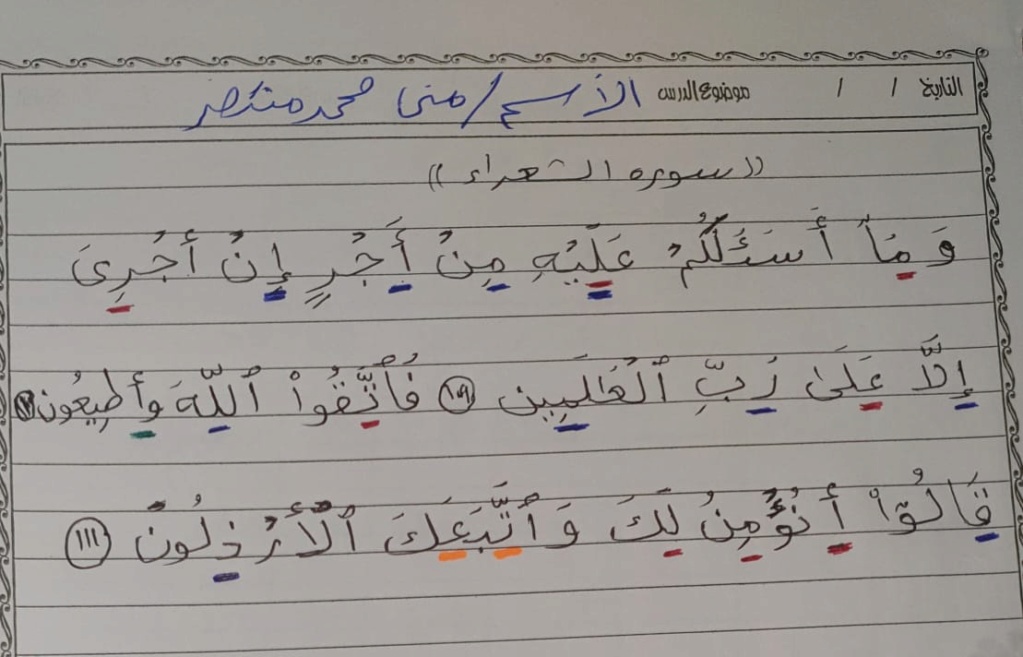 التاريخ / / موضوع الدرس الأسم/ منى محمد منتصر
((سوره الشعراء))
وَمَآ أَسۡـَٔلُكُمۡ عَلَيۡهِ مِنۡ أَجۡرٍ إِنۡ أَجۡرِىَ
إِلَّا عَلَىٰ رَبِّ ٱلۡعَٰلَمِين ١٠٩ فَٱتَّقُواْ ٱللَّهَ وَأَطِيعُون ١١٠
قَالُوٓاْ أَنُؤۡمِنُ لَكَ وَٱتَّبَعَكَ ٱلۡأَرۡذَلُونَ ١١١